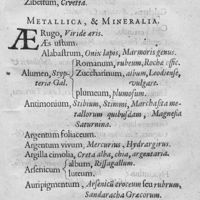 Zibettum, Civetta.
METALLICA, & MINERALIA.
ÆRugo, Viride aris.
Æs ustum.
Alabastrum, Onix lapis, Marmoris genus.
Romanum, rubeum, Rocha esse.
Alumen, Styp- Zuccharinum, album, Leodiense,
teria Gal. vulgare.
plumeum, plumosum.
Antimonium, Stibium, Stimmi, Marchasita me-
tallorum quibusdam, Magnesia
Saturnina.
Argentum foliaceum.
Argentum vivum, Mercurius, Hydrargirus.
Argilla cimolia, Creta alba, chia, argentaria.
Arsenicum album, Risagallum.
luteum.
Auripigmentum, Arsenicū croceum seu rubrum,
Sandaracha Græcorum.